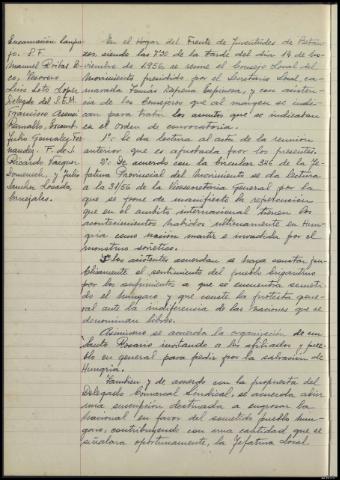 Encarnación
jo. S.F.
Manuel
co, Moreno
Luis Soto López
Delegado del S.E.M.
Francisco
Julia González Fer-
nandez. F. de J.
Ricardo Vazquez
Domenech, y Julio
Sanchez Losada,
Consejales.
En el Hogar del Frente de Juventudes de Betan-
zos siendo las 7'30 de la tarde del día 14 de no-
viembre de 1956 se reune el Consejo Local del
Movimiento presidido por el Secretario Local, ca-
marada Tomás Dapena Espinosa, y con asisten-
cia de los Consejeros que al margen se indi-
can para tratar los asuntos que se indicaban
en el Orden de convocatoria.
1º. Se da lectura al acta de la reunión
anterior que es aprobada por los presentes.
2º. De acuerdo con la Circular 346 de la Je-
fatura Provincial del Movimiento se da lectura
a la 31/56 de la Vicesecretaría General por la
que se pone de manifiesto la repercusión
que en el ámbito internacional tienen los
acontecimientos habidos ultimamente en Hun-
gría como nación martir e invadida por el
monstruo soviético.
Los asistentes acuerdan se haga constar pú-
blicamente el sentimiento del pueblo brigantino
por los sufrimientos a que se encuentra someti-
do el hungaro y que conste la protesta gene-
ral ante la indiferencia de las naciones que se
denominan libres.
Asimismo se acuerda la organización de un
Santo Rosario invitando a los afiliados y pue-
blo en general para pedir por la salvación de
Hungría.
Tambien y de acuerdo con la propuesta del
Delegado Comarcal Sindical, se acuerda abrir
una suscripción destinada a engrosar la
nacional en favor del sometido pueblo hun-
garo, contribuyendo con una cantidad, que se
señalara oportunamente, la Jefatura Local